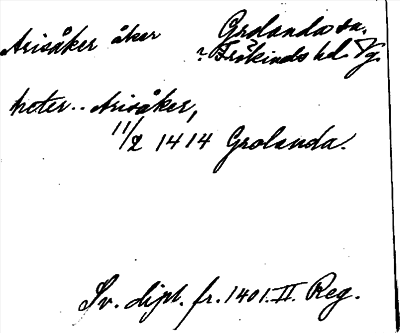 Arisåker åker Grolanda sn.
? Frökinds hd. Vg.
heter.. Arisåker,
11/2 1414 Grolanda.
Sv. dipl. fr. 1401. II. Reg.